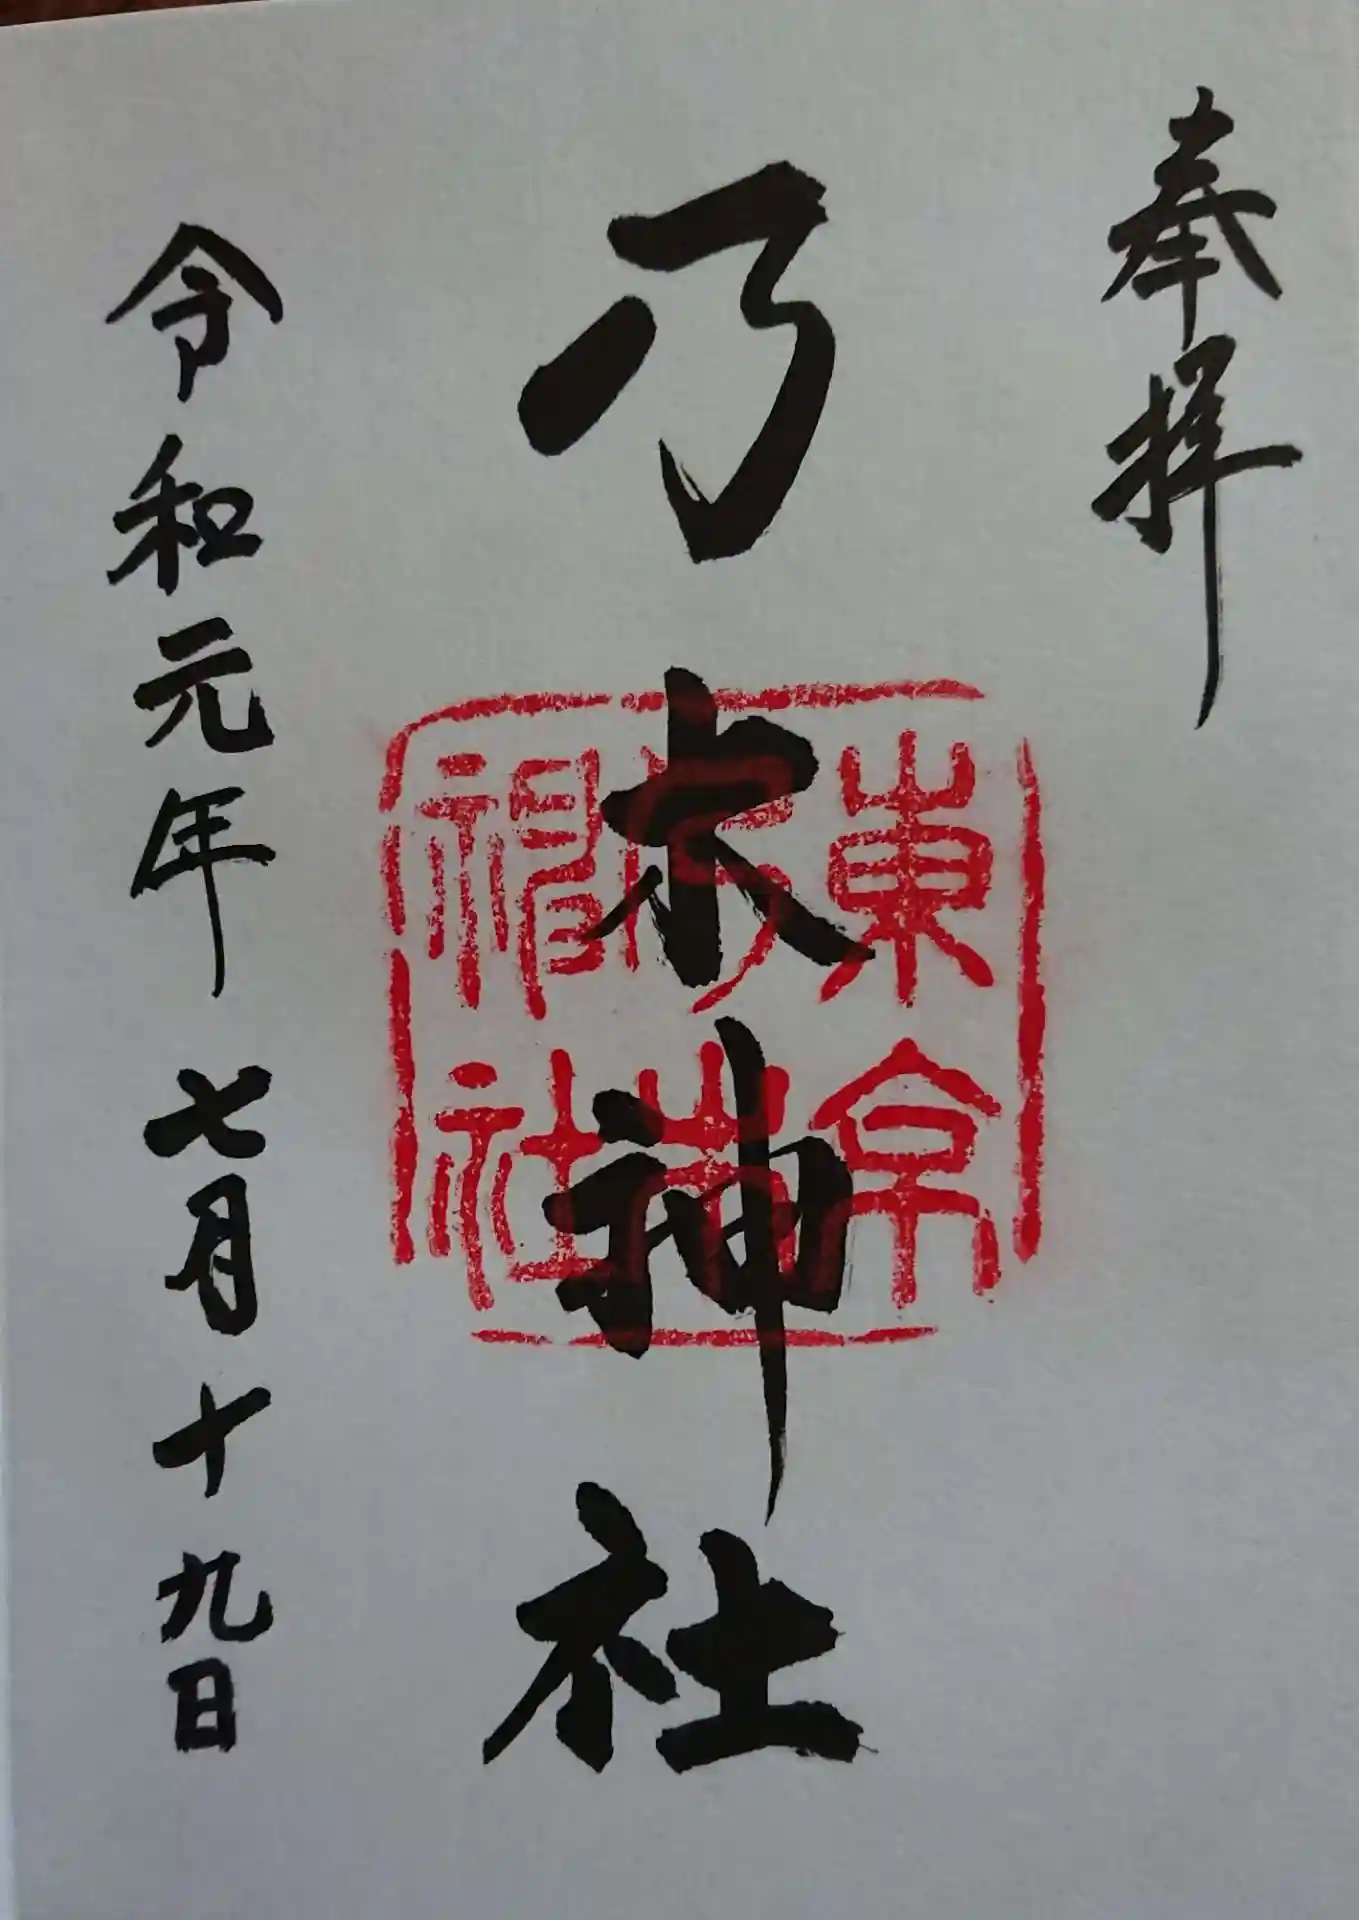 奉拝
乃木神社
東京
乃木
神社
令和元年 七月十九日